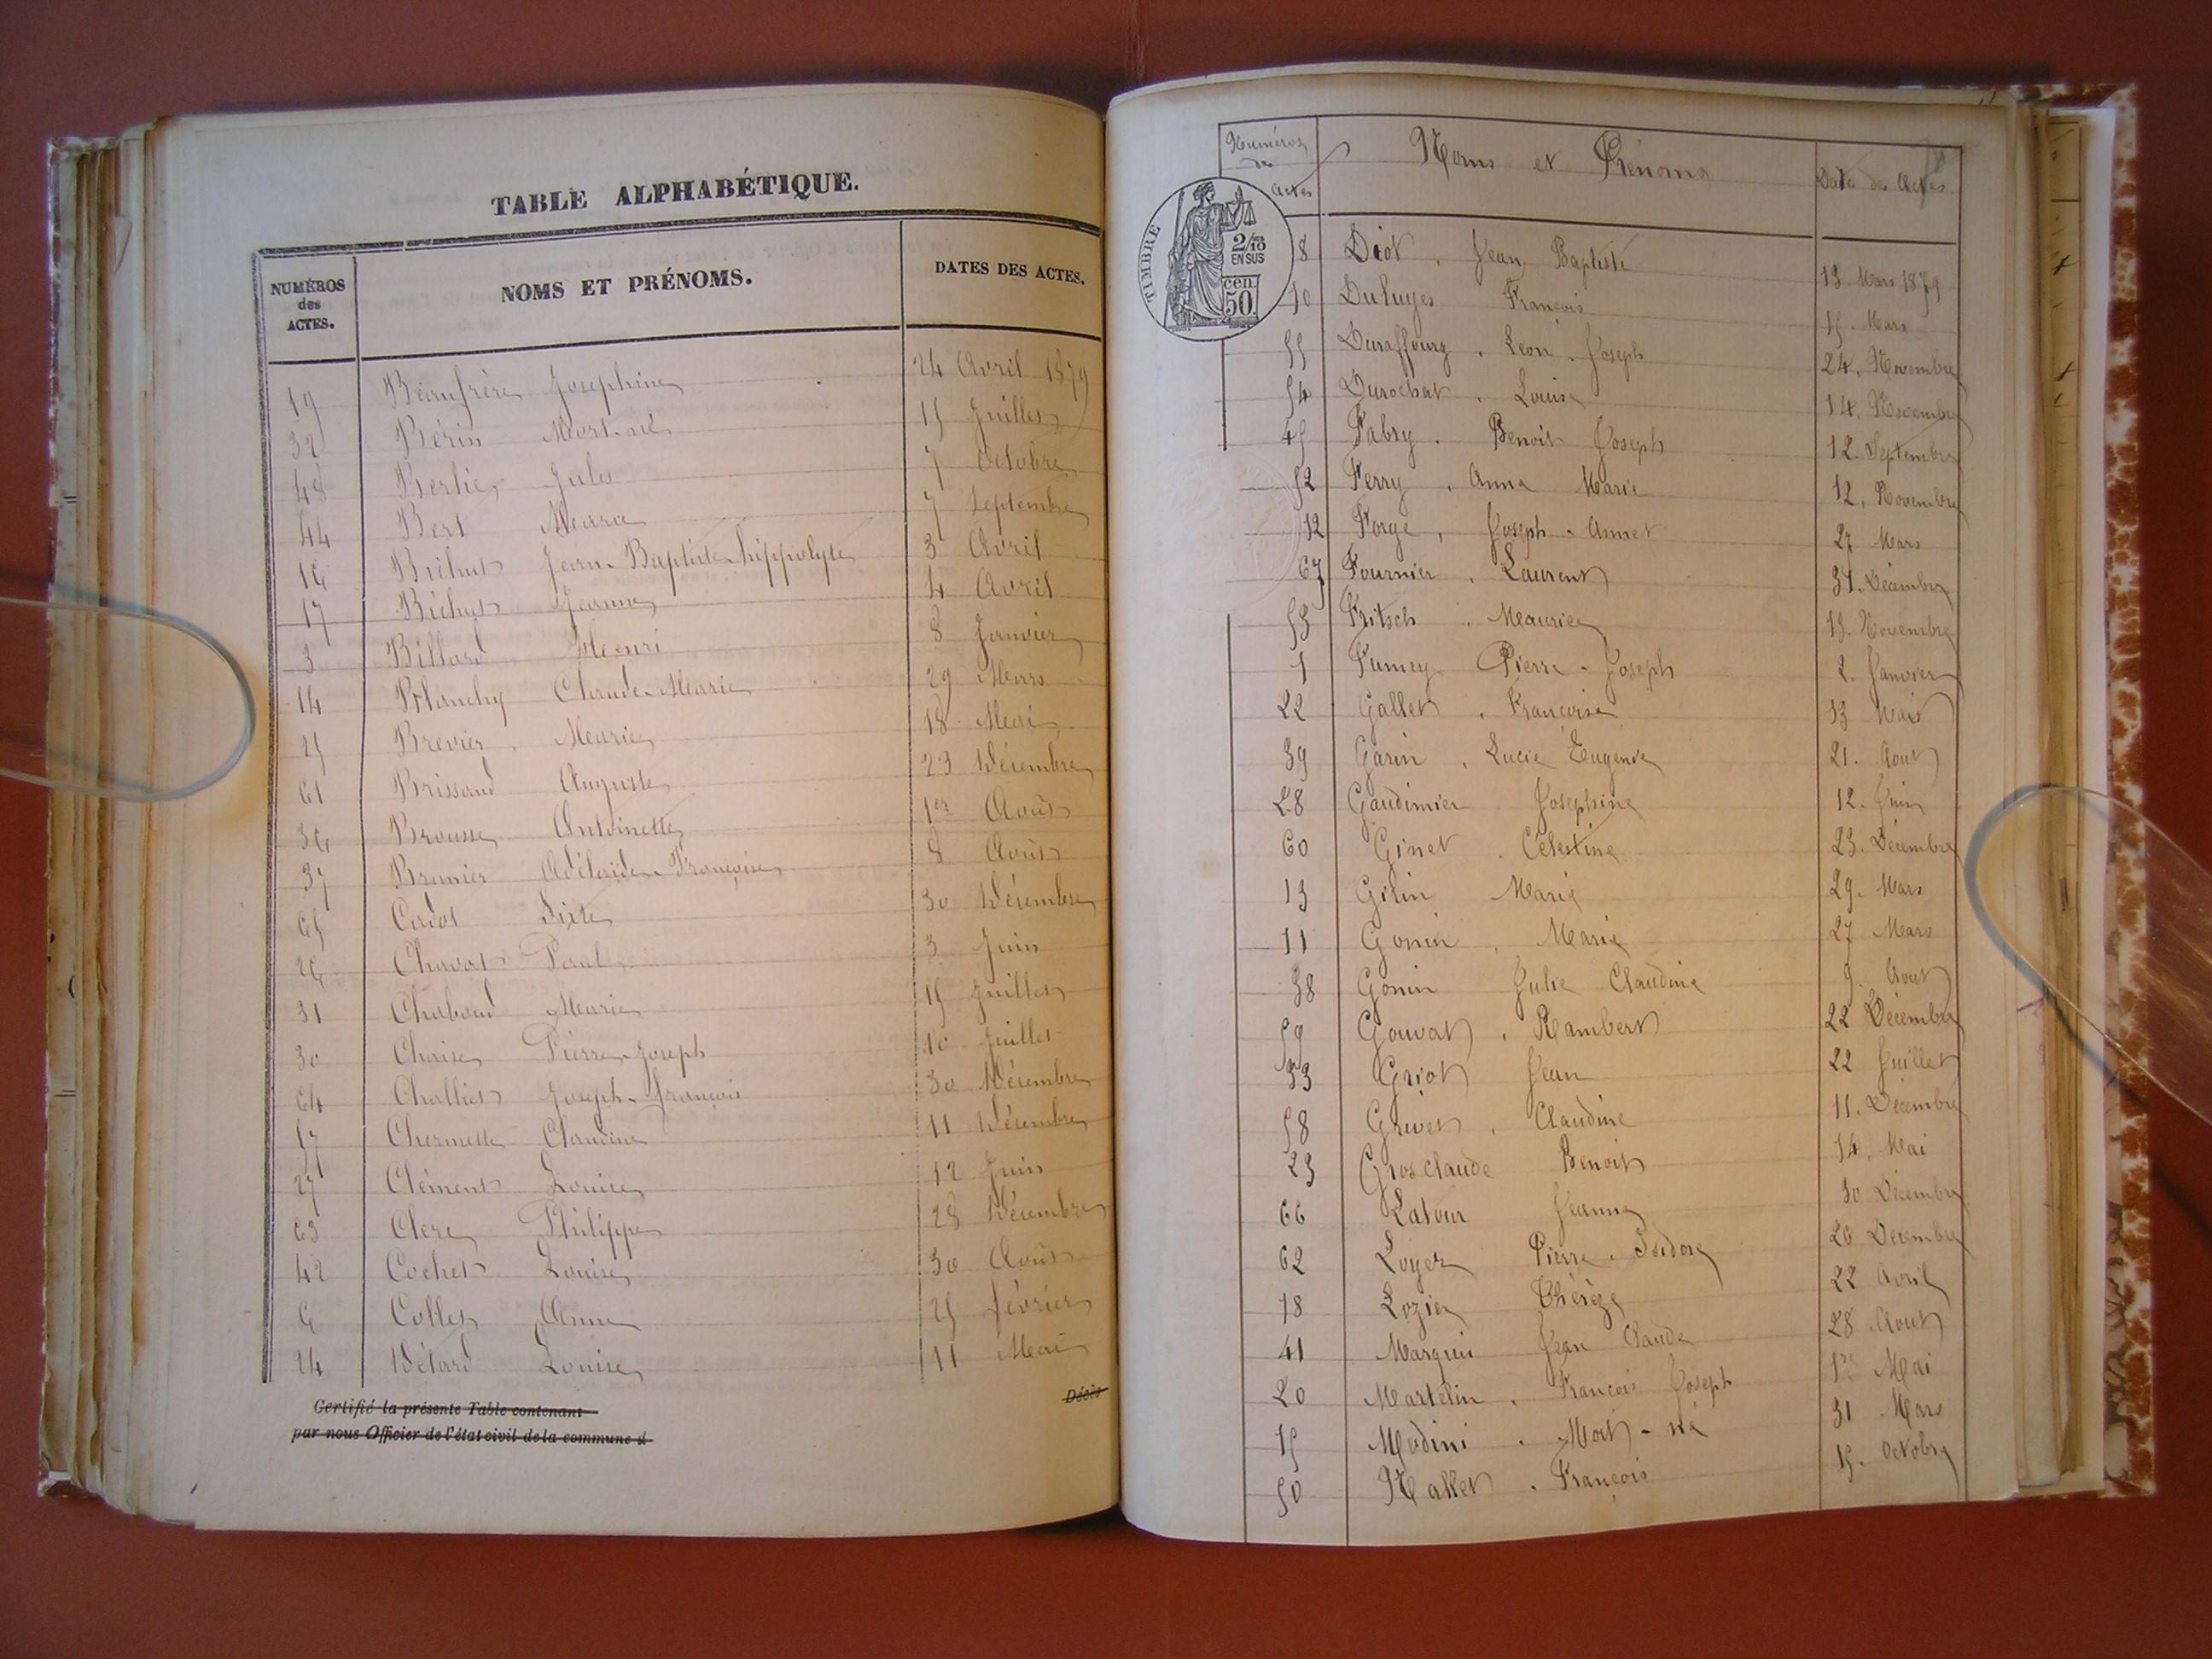 TABLE ALPHABÉTIQUE.
NUMÉROS des ACTES. NOMS ET PRÉNOMS. DATES DES ACTES.
19 Beaufrère Josephine 24 Avril 1879
32 Bérin Mort-né 15 Juillet
48 Berlie Jules 7 Octobre
44 Bert Marie 7 Septembre
16 Bichet Jean-Baptiste-hippolyte 3 Avril
17 Bichet Jeanne 4 Avril
3 Billard Henri 8 Janvier
14 Blanchy Claude-Marie 29 Mars
25 Brevier Marie 18 Mai
61 Brissaud Auguste 23 Décembre
36 Brousse Antoinette 1er Août
37 Brunier Adélaïde-Françoise 8 Août
65 Cadot Sixte 30 Décembre
26 Chavat Paul 3 Juin
31 Chaboud Marie 15 Juillet
30 Chaise Pierre-Joseph 10 Juillet
64 Challiet Joseph-françois 30 Décembre
57 Chermette Claudine 11 Décembre
27 Clément Louise 12 Juin
63 Clerc Philippe 28 Décembre
42 Cochet Louise 30 Août
6 Collet Anne 25 février
24 Délard Louise 11 Mai
Certifié la présente Table contenant Décès
par nous Officier de l'état civil de la commune d
Numéros des Actes Noms et Prénoms Date des Actes
TIMBRE 2/10es EN SUS cen. 50
8 Diot, Jean Baptiste 13 Mars 1879
10 Duluyes François 15. Mars
55 Duraffourg, Léon. Joseph 24. Novembre
54 Durochat, Louise 14. Novembre
45 Fabry. Benoit Joseph 12. Septembre
52 Ferry, Anna Marie 12, Novembre
12 Forge, Joseph-Annet 27 Mars
67 Fournier, Laurent 31. Décembre
53 Fritsch, Maurice 13. Novembre
1 Fumey Pierre-Joseph 2. Janvier
22 Gallet, Françoise 13 Mai
39 Garin, Lucie Eugenie 21. Aout
28 Gaudimier Josephine 12. Juin
60 Ginet. Célestine 23. Décembre
13 Girin Marie 29. Mars
11 Gonin, Marie 27 Mars
38 Gonin Julie Claudine 9. Aout
59 Gouvat, Rambert 22 Décembre
33 Griot Jean 22 Juillet
58 Grivet, Claudine 11. Décembre
23 Grosclaude Benoit 14, Mai
66 Latour Jeanne 30 Décembre
62 Loyer Pierre. Isidore 26 Décembre
18 Lozier Thérèze 22 Avril
41 Marquis Jean Claude 28 Aout
20 Martelin. François Joseph 1er Mai
15 Modini. Mort-né 31 Mars
50 Nallet. François 15. Octobre